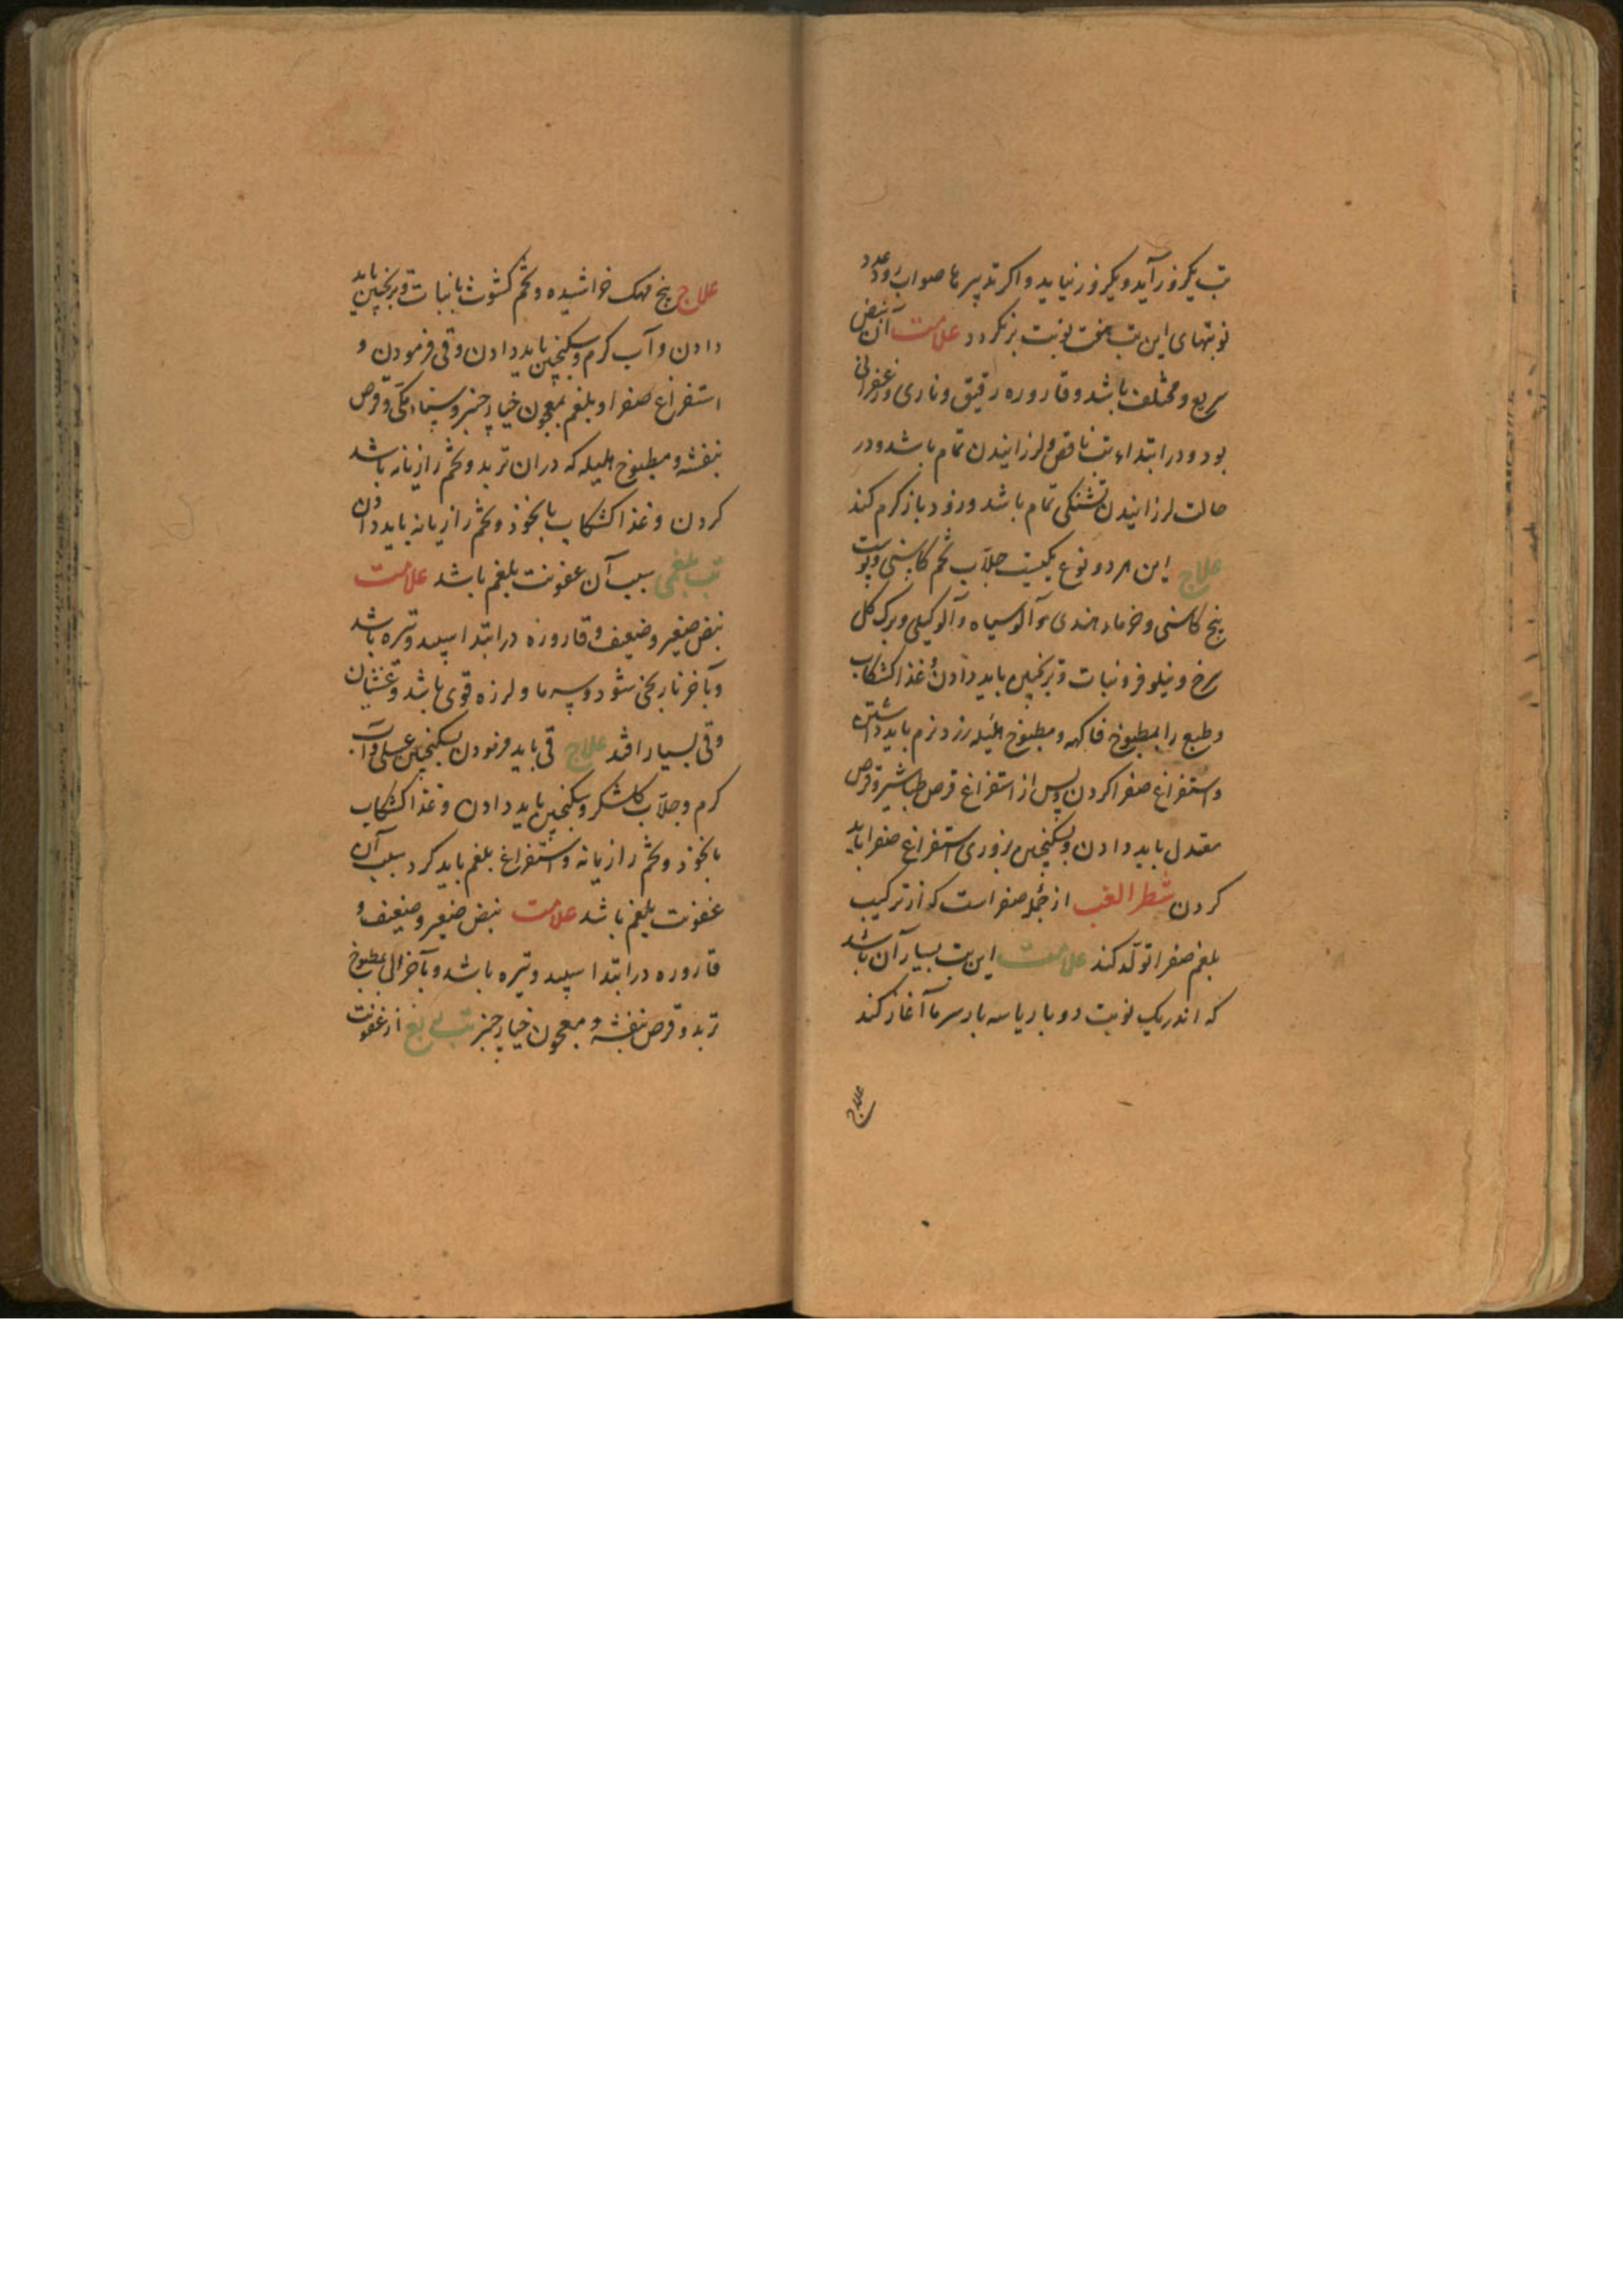 تب یکروز آید و یکروز نیاید و اکر تدبیرها صواب رود عدد
نوبتهای این تب هفت نوبت بر نکردد علامت آن نبض
سریع و مختلف باشد و قاروره رقیق و ناری و زعفرانی
بود و در ابتداء تب ناقص و لرزانیدن تمام باشد و در
حالت لرزانیدن تشنکی تمام باشد و زود باز کرم کند
علاج این هر دو نوع یکیست جلّاب تخم کاسنی و پوست
بیخ کاسنی و خرماء هندی و آلو سیاه و آلو کیلی و برک کل
سرخ و نیلوفر و نبات و ترنجبین باید دادن و غذا کشکاب
و طبع را بمطبوخ فاکهه و مطبوخ هلیله زرد نرم باید داشتن
و استفراغ صفرا کردن و پس از استفراغ قرص طباشیر و قرص
معتدل باید دادن و سکنجبین بزوری استفراغ صفرا باید
کردن شطر الغب از جمله صفراست که از ترکیب
بلغم صفرا تولّد کند علامت این تب بسیار آن باشد
که اندر یک نوبت دو بار یا سه بار سرما آغاز کند
علاج
علاج بیخ مهک خراشیده و تخم کشوث با نبات و ترنجبین باید
دادن و آب کرم و سکنجبین باید دادن و قی فرمودن و
استفراغ صفرا و بلغم بمعجون خیار چنبر و سناء مکّی و قرص
بنفشه و مطبوخ هلیله که دران تربد و تخم رازیانه باشد
کردن و غذا کشکاب با نخود و تخم رازیانه باید دادن
تب بلغمی سبب آن عفونت بلغم باشد علامت
نبض صغیر و ضعیف و قاروره در ابتدا سپید و تیره باشد
و بآخر نارنجی شود و سرما و لرزه قوی باشد و غشیان
و قی بسیار افتد علاج قی باید فرمودن بسکنجبین عسلی و آب
کرم و جلّاب کلشکر و سکنجبین باید دادن و غذا کشکاب
با نخود و تخم رازیانه و استفراغ بلغم باید کرد سبب آن
عفونت بلغم باشد علامت نبض صغیر و ضعیف و
قاروره در ابتدا سپید و تیره باشد و بآخر الی مطبوخ
تربد و قرص بنفشه و معجون خیار چنبر تب ربع از عفونت